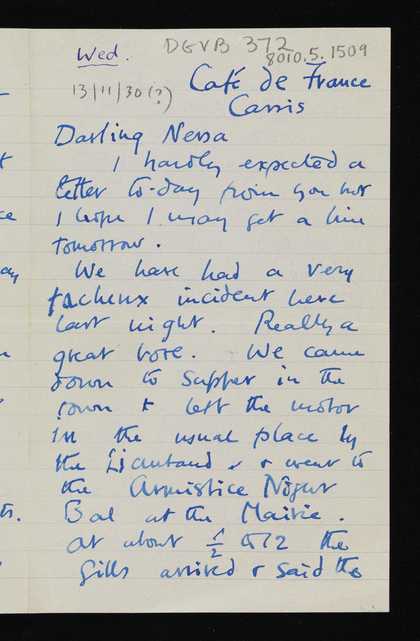 Wed.
DGVB 372
8010.5.1509
13/11/30(?)
Café de France
Cassis
Darling Nessa
I hardly expected a
letter to-day from you but
I hope I may get a line
tomorrow.
We have had a very
facheux incident here
last night. Really a
great bore. We came
down to supper in the
town & left the motor
in the usual place by
the Lieutaud & & went to
the Armistice Night
Bal at the Mairie.
at about ½ 12 the
Gills arrived & said the